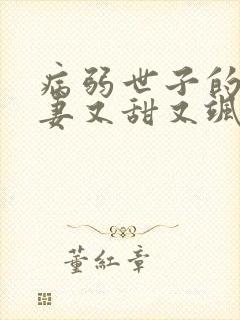 病弱世子的
妻又甜又飒
董紅章